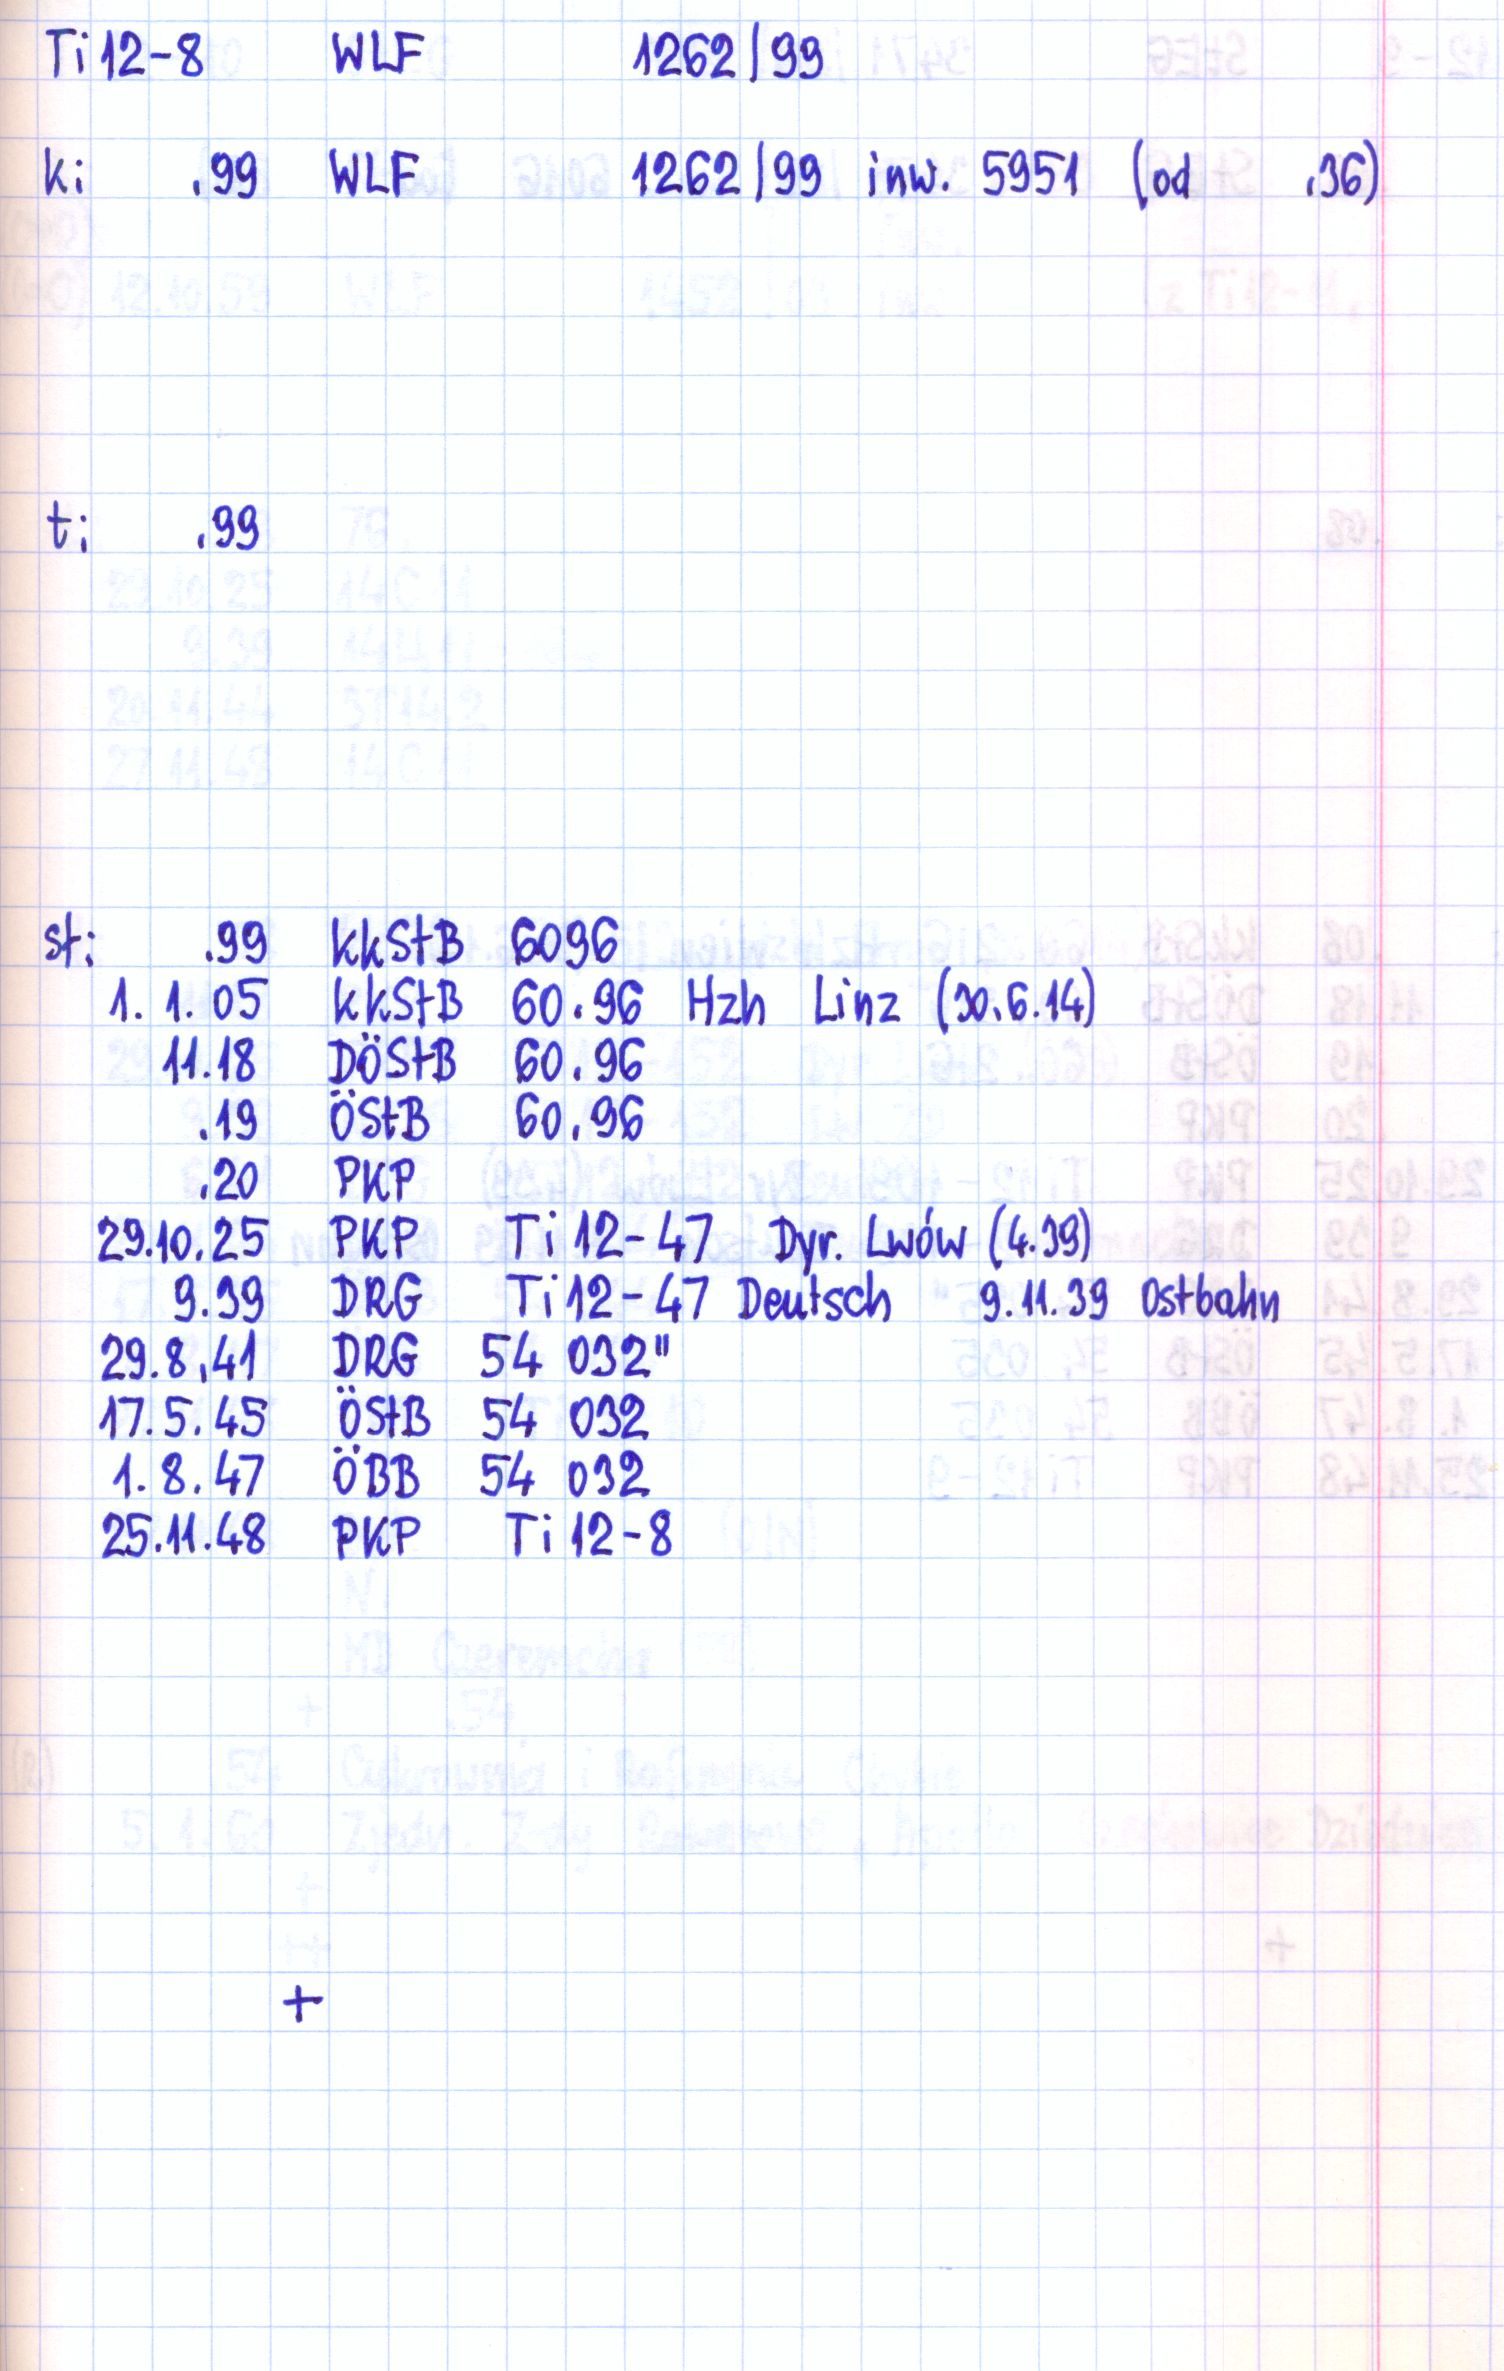 Ti 12-8 WLF 1262/99
k: .99 WLF 1262/99 inw. 5951 (od .36)
t: .99
st: .99 kkStB 6096
1. 1. 05 kkStB 60.96 Hzh Linz (30.6.14)
11.18 DÖStB 60.96
.19 ÖStB 60.96
.20 PKP
29.10.25 PKP Ti 12-47 Dyr. Lwów (4.39)
9.39 DRG Ti 12-47 Deutsch 9.11.39 Ostbahn
29.8.41 DRG 54 032"
17.5.45 ÖStB 54 032
1. 8. 47 ÖBB 54 032
25.11.48 PKP Ti 12-8
+